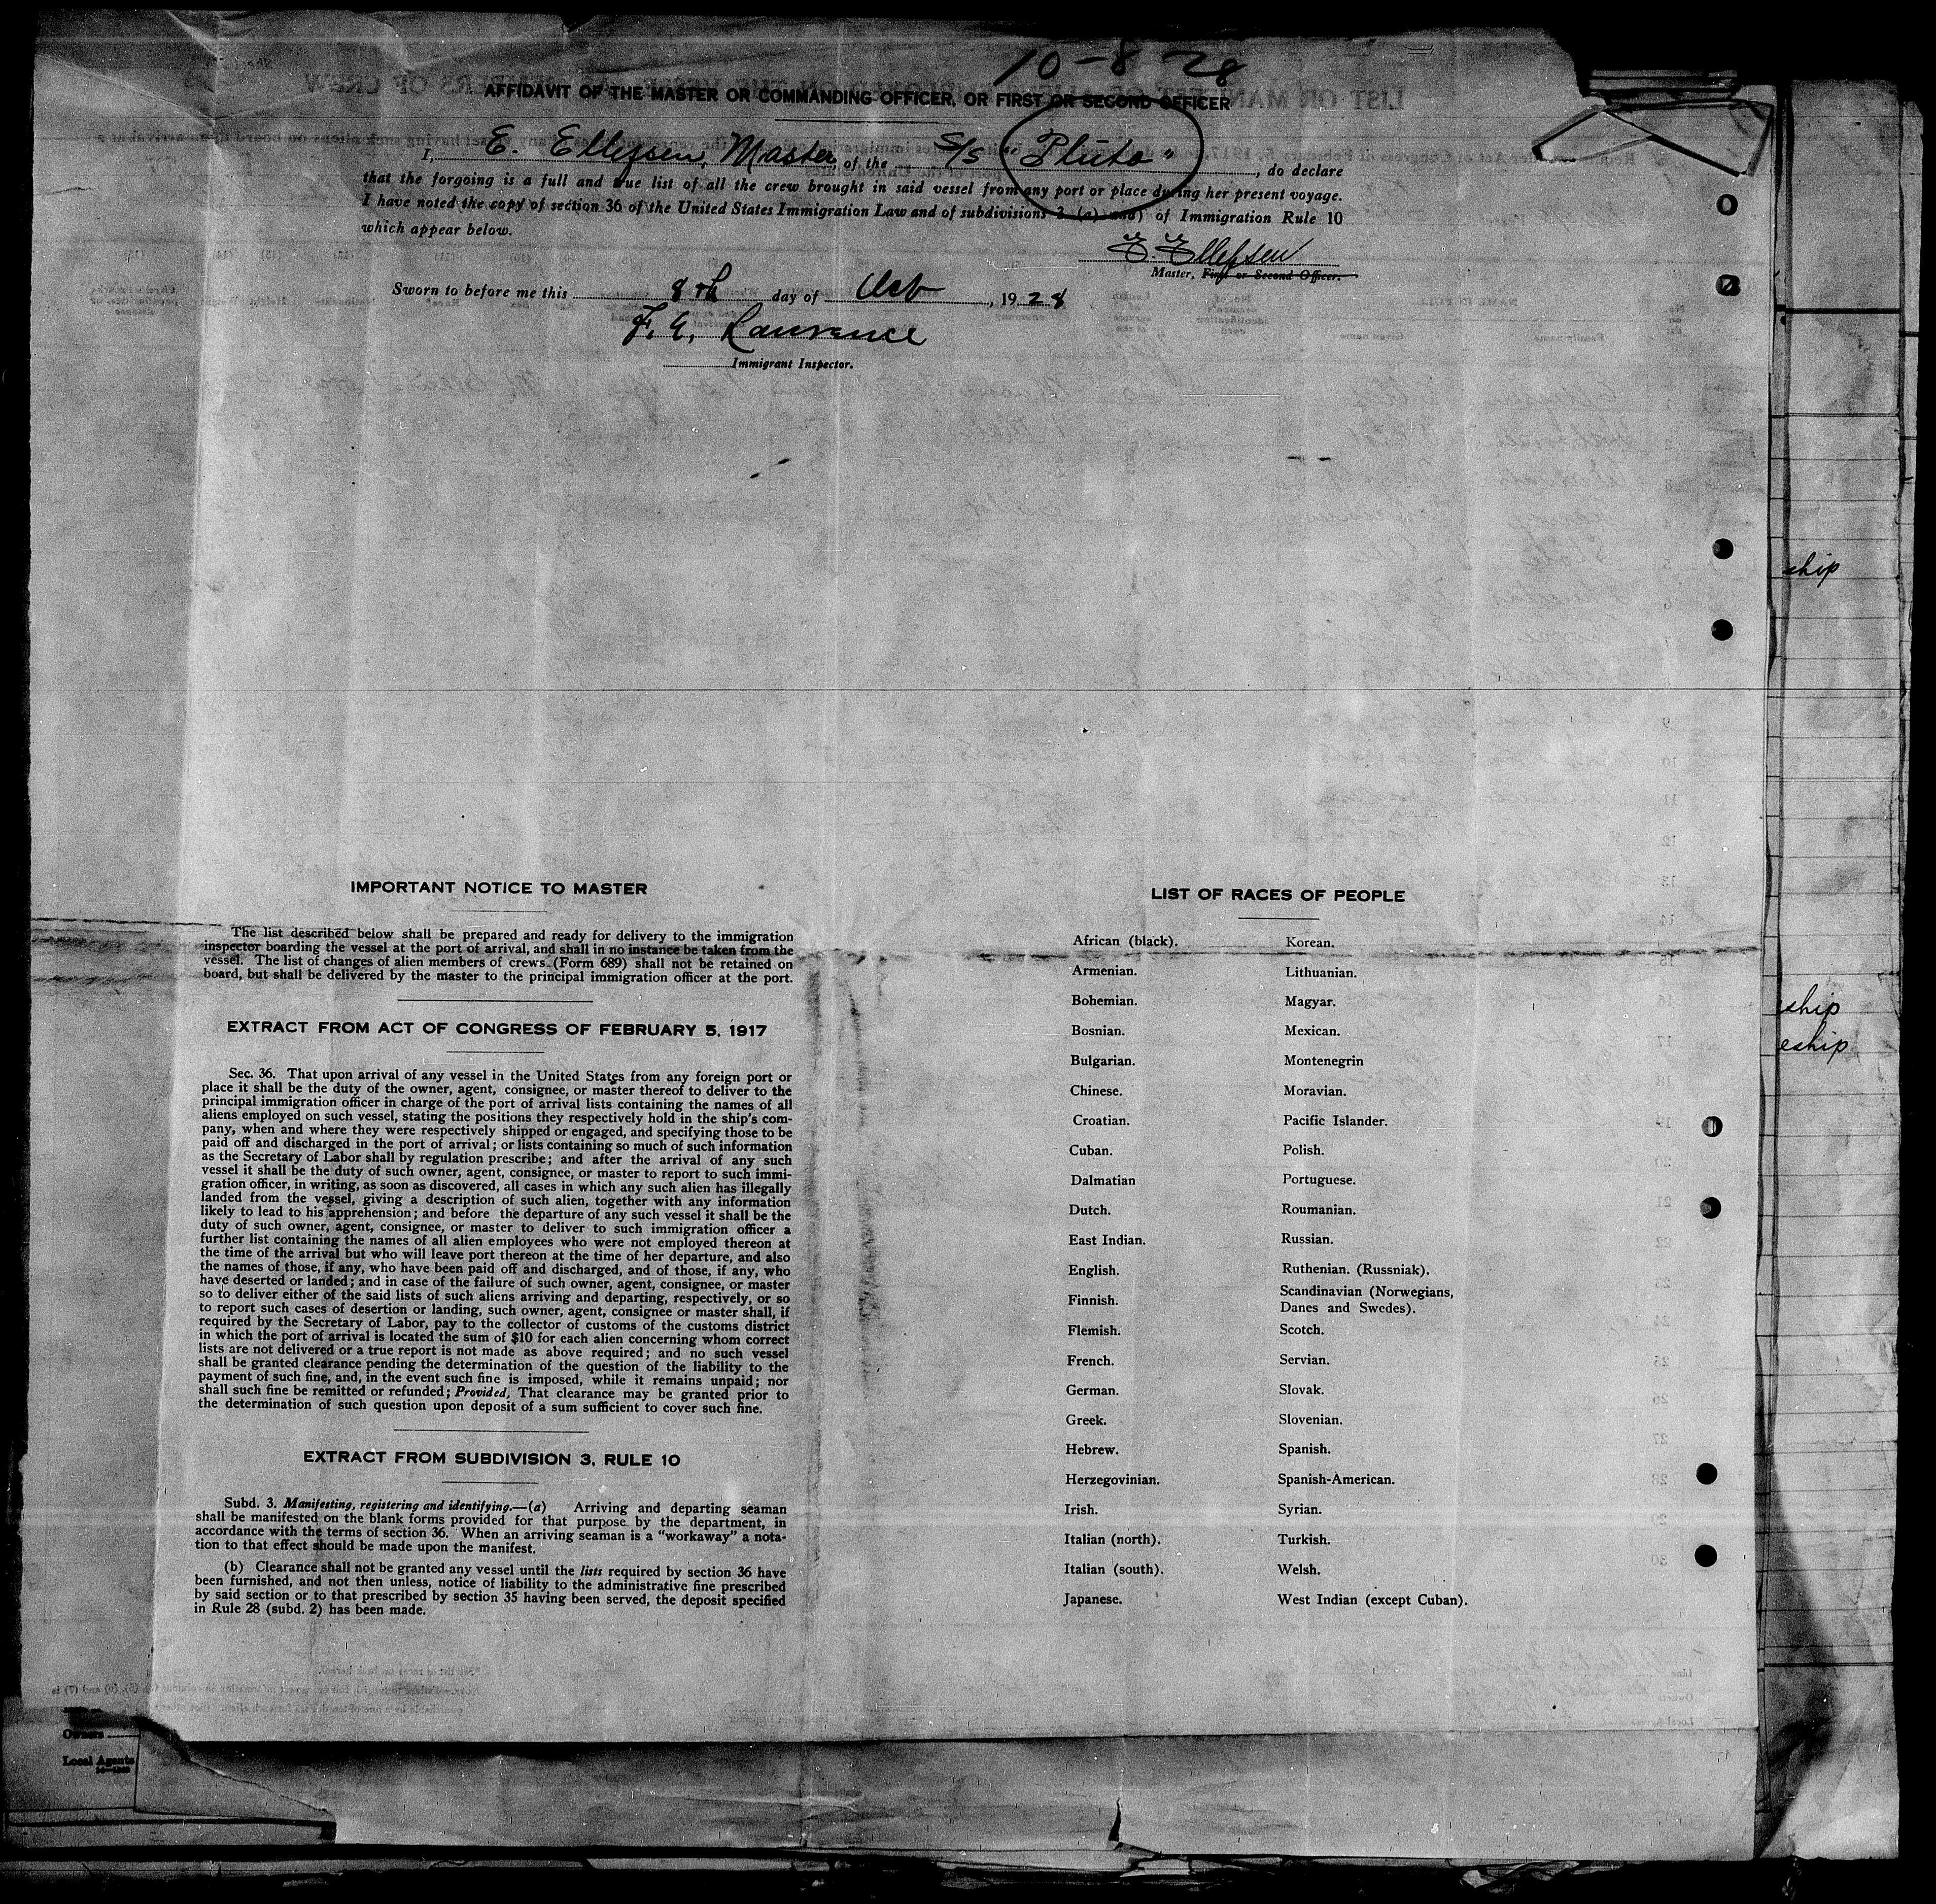 10-8-28
AFFIDAVIT OF THE MASTER OR COMMANDING OFFICER, OR FIRST OR SECOND OFFICER
I, E. Ellefsen, Master of the S/S "Pluto", do declare
that the forgoing is a full and true list of all the crew brought in said vessel from any port or place during her present voyage.
I have noted the copy of section 36 of the United States Immigration Law and of subdivisions 3 (a) and) of Immigration Rule 10
which appear below.
E. Ellefsen
Master, First or Second Officer.
Sworn to before me this 8th day of Oct, 1928
F. E. Lawrence
Immigrant Inspector.
ship
ship
eship
IMPORTANT NOTICE TO MASTER
The list described below shall be prepared and ready for delivery to the immigration
inspector boarding the vessel at the port of arrival, and shall in no instance be taken from the
vessel. The list of changes of alien members of crews (Form 689) shall not be retained on
board, but shall be delivered by the master to the principal immigration officer at the port.
EXTRACT FROM ACT OF CONGRESS OF FEBRUARY 5, 1917
Sec. 36. That upon arrival of any vessel in the United States from any foreign port or
place it shall be the duty of the owner, agent, consignee, or master thereof to deliver to the
principal immigration officer in charge of the port of arrival lists containing the names of all
aliens employed on such vessel, stating the positions they respectively hold in the ship's com-
pany, when and where they were respectively shipped or engaged, and specifying those to be
paid off and discharged in the port of arrival; or lists containing so much of such information
as the Secretary of Labor shall by regulation prescribe; and after the arrival of any such
vessel it shall be the duty of such owner, agent, consignee, or master to report to such immi-
gration officer, in writing, as soon as discovered, all cases in which any such alien has illegally
landed from the vessel, giving a description of such alien, together with any information
likely to lead to his apprehension; and before the departure of any such vessel it shall be the
duty of such owner, agent, consignee, or master to deliver to such immigration officer a
further list containing the names of all alien employees who were not employed thereon at
the time of the arrival but who will leave port thereon at the time of her departure, and also
the names of those, if any, who have been paid off and discharged, and of those, if any, who
have deserted or landed; and in case of the failure of such owner, agent, consignee, or master
so to deliver either of the said lists of such aliens arriving and departing, respectively, or so
to report such cases of desertion or landing, such owner, agent, consignee or master shall, if
required by the Secretary of Labor, pay to the collector of customs of the customs district
in which the port of arrival is located the sum of $10 for each alien concerning whom correct
lists are not delivered or a true report is not made as above required; and no such vessel
shall be granted clearance pending the determination of the question of the liability to the
payment of such fine, and, in the event such fine is imposed, while it remains unpaid; nor
shall such fine be remitted or refunded; Provided, That clearance may be granted prior to
the determination of such question upon deposit of a sum sufficient to cover such fine.
EXTRACT FROM SUBDIVISION 3, RULE 10
Subd. 3. Manifesting, registering and identifying.—(a) Arriving and departing seaman
shall be manifested on the blank forms provided for that purpose by the department, in
accordance with the terms of section 36. When an arriving seaman is a "workaway" a nota-
tion to that effect should be made upon the manifest.
(b) Clearance shall not be granted any vessel until the lists required by section 36 have
been furnished, and not then unless, notice of liability to the administrative fine prescribed
by said section or to that prescribed by section 35 having been served, the deposit specified
in Rule 28 (subd. 2) has been made.
LIST OF RACES OF PEOPLE
African (black).
Armenian.
Bohemian.
Bosnian.
Bulgarian.
Chinese.
Croatian.
Cuban.
Dalmatian
Dutch.
East Indian.
English.
Finnish.
Flemish.
French.
German.
Greek.
Hebrew.
Herzegovinian.
Irish.
Italian (north).
Italian (south).
Japanese.
Korean.
Lithuanian.
Magyar.
Mexican.
Montenegrin
Moravian.
Pacific Islander.
Polish.
Portuguese.
Roumanian.
Russian.
Ruthenian. (Russniak).
Scandinavian (Norwegians,
Danes and Swedes).
Scotch.
Servian.
Slovak.
Slovenian.
Spanish.
Spanish-American.
Syrian.
Turkish.
Welsh.
West Indian (except Cuban).
Owners
Local Agents